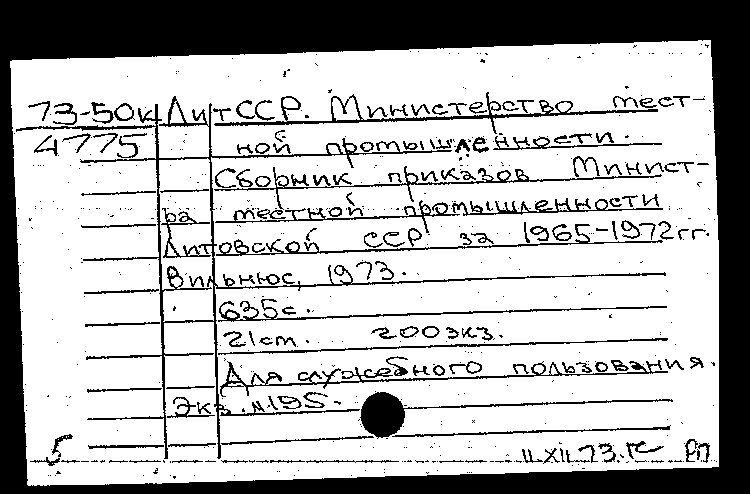 73-50к ЛитССР. Министерство мест-
4775 ной промышленности.
Сборник приказов Минист-
ра местной промышленности
Литовской ССР за 1965-1972гг.
Вильнюс, 1973.
635с.
21см. 200экз.
Для служебного пользования.
Экз. №195.
5 11.XII.73. РП